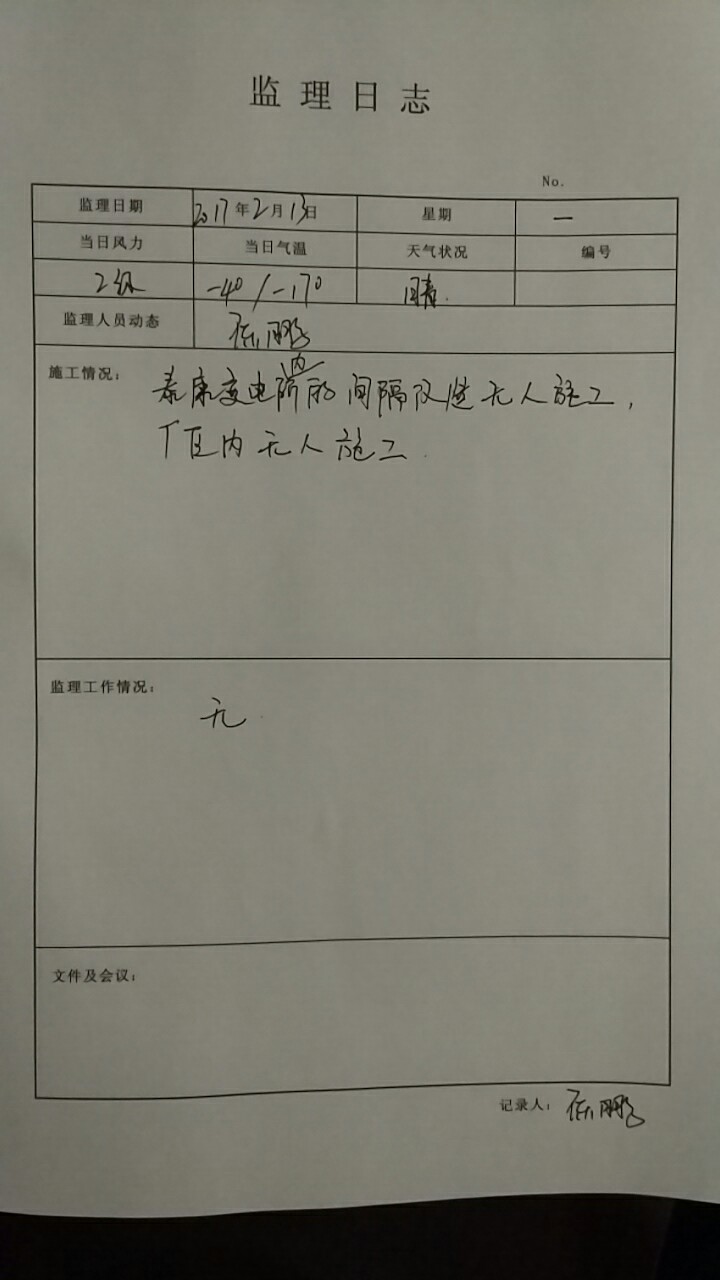 监理日志
No.
监理日期 2017年2月13日 星期 一
当日风力 当日气温 天气状况 编号
2级 -4°/-17° 晴
监理人员动态 任鹏
施工情况: 泰康变电所内 间隔改造无人施工,
厂区内无人施工.
监理工作情况:
无
文件及会议:
记录人: 任鹏